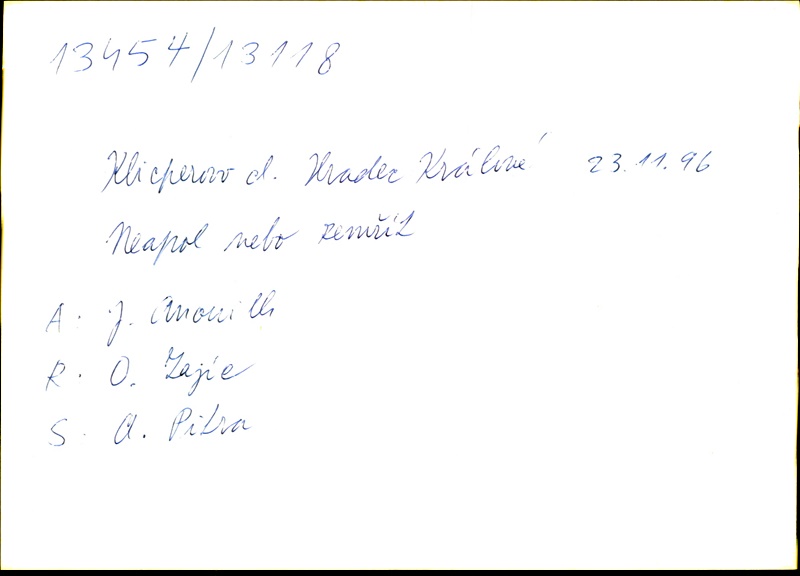 13454/13118
Klicperovo d. Hradec Králové 23.11.96
Neapol nebo zemřít
A. J. Anouilh
R. O. Zajíc
S. A. Pitra